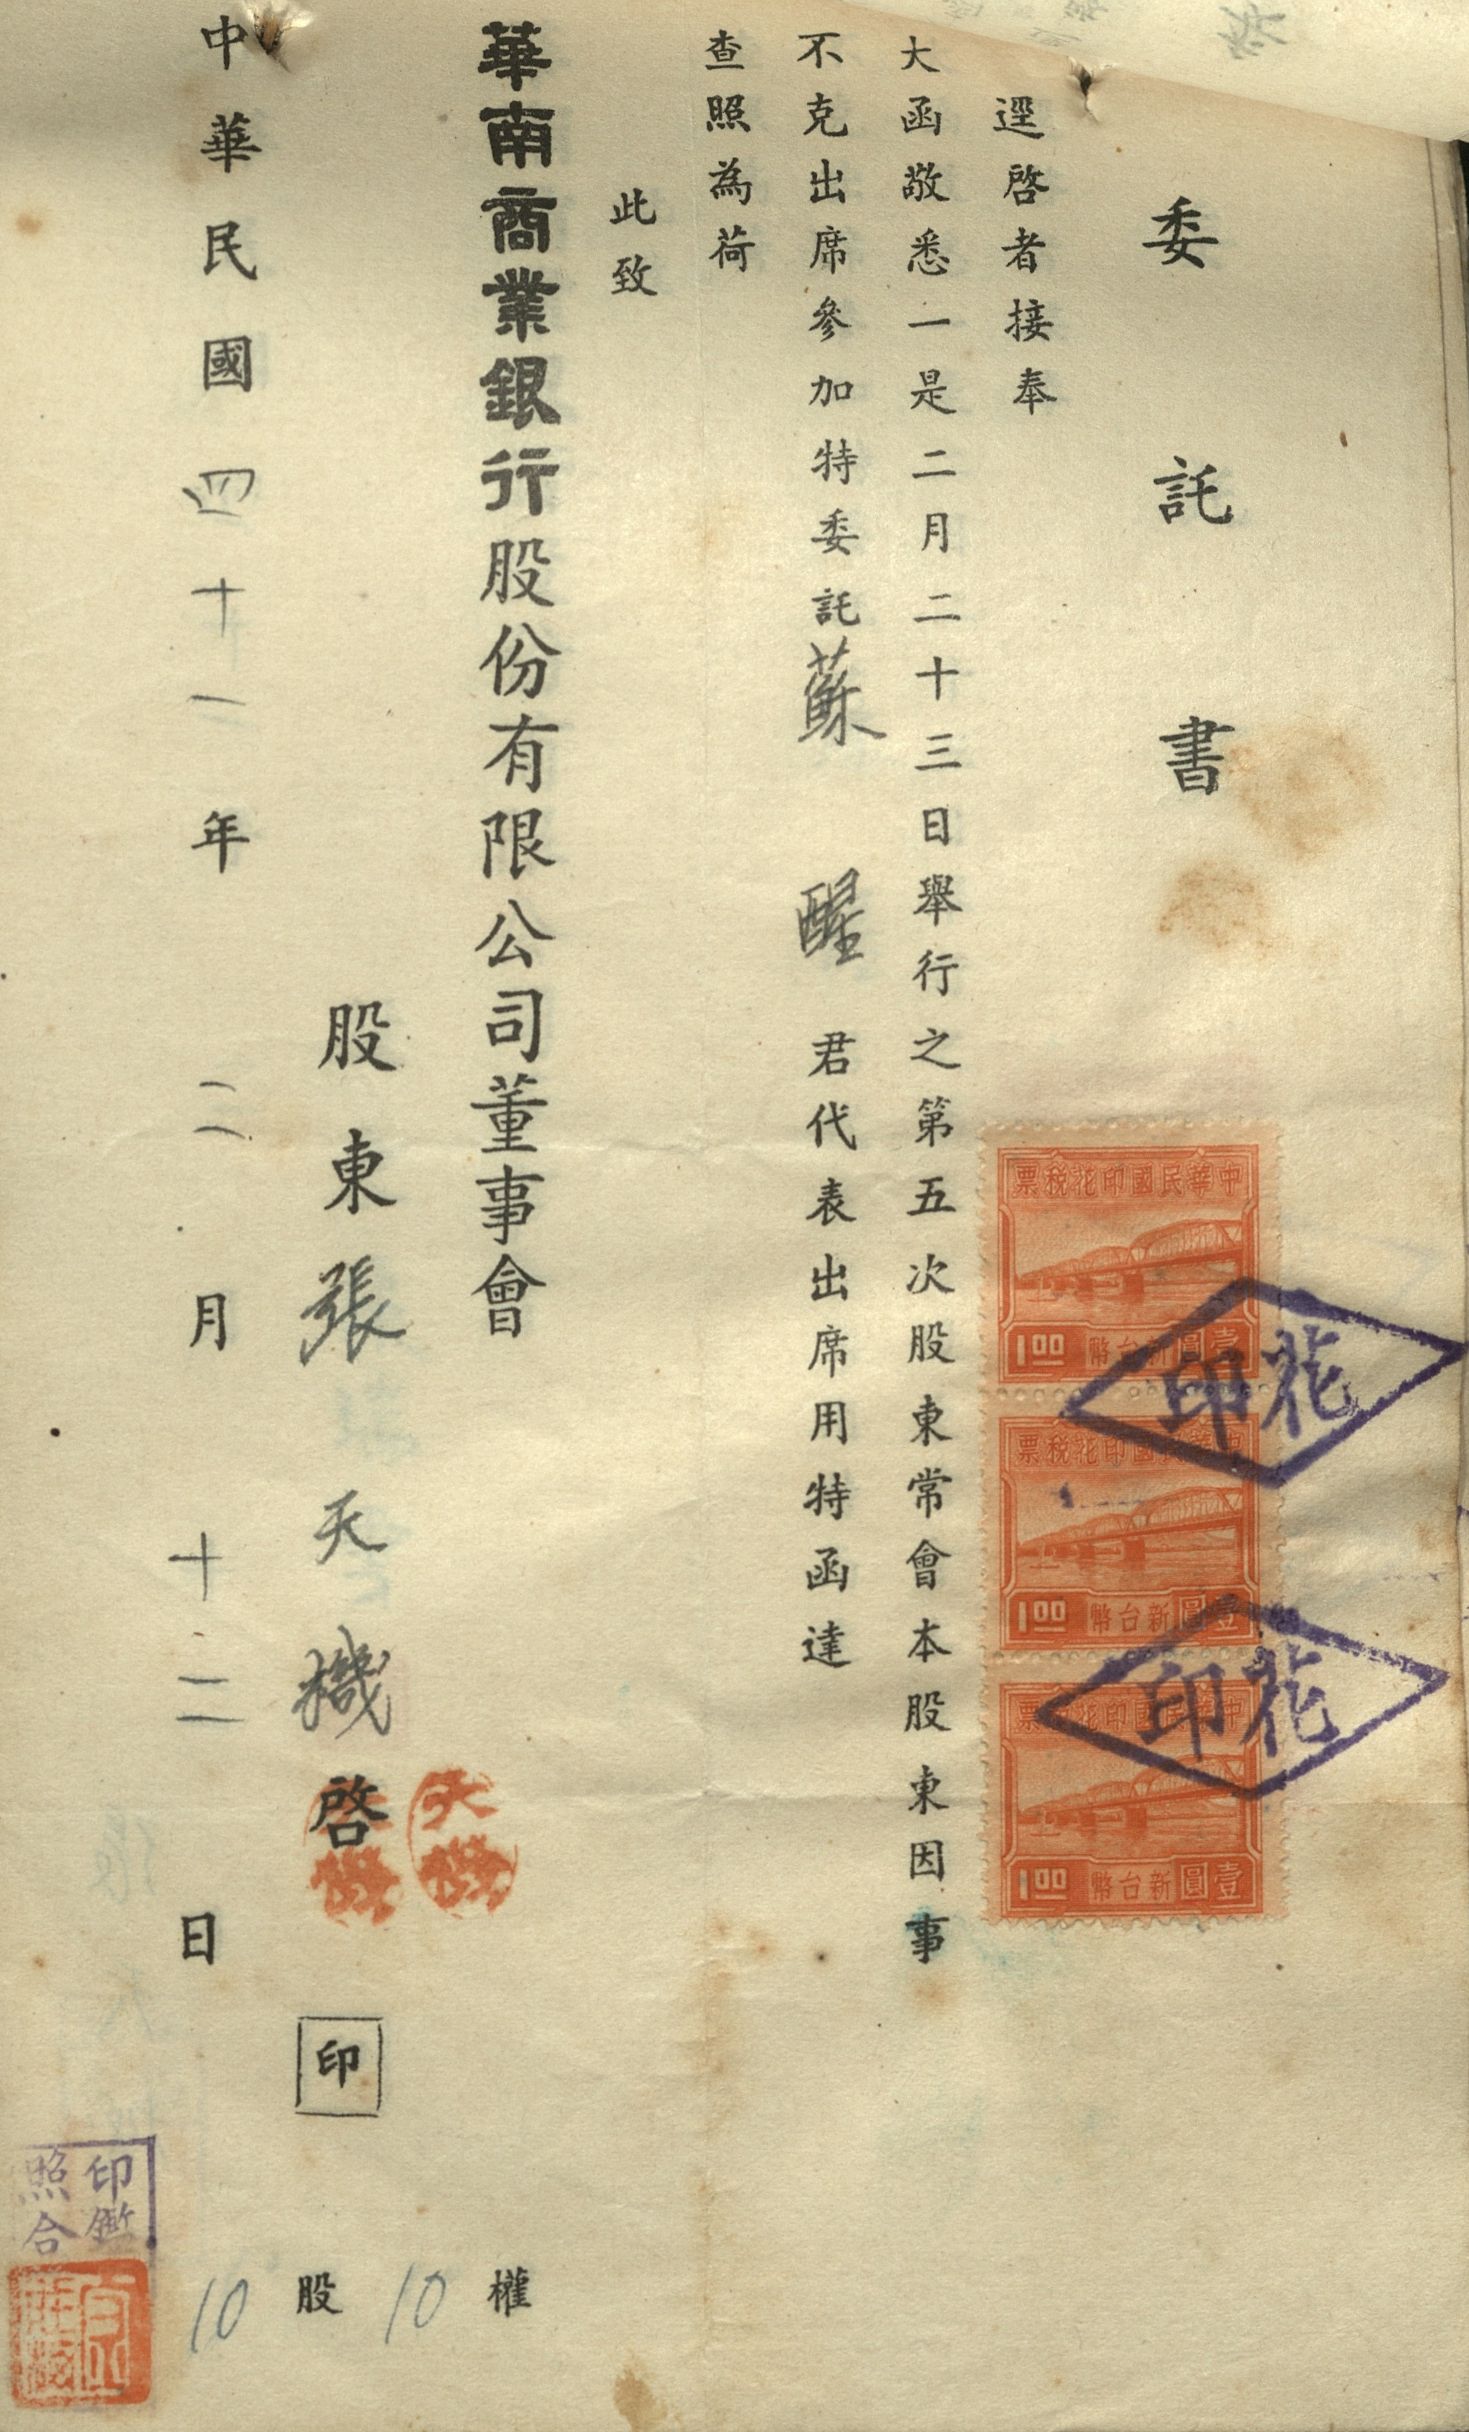 委託書
逕啓者接奉
大函敬悉一是二月二十三日舉行之第五次股東常會本股東因事
不克出席參加特委託蘇醒君代表出席用特函達
查照為荷
此致
華南商業銀行股份有限公司董事會
股東張天機啓 印
天機
天機
中華民國四十一年二月十二日
10股10權
印鑑
照合
中華民國印花税票
1.00 壹圓新台幣
中華民國印花税票
1.00 壹圓新台幣
中華民國印花税票
1.00 壹圓新台幣
印花
印花